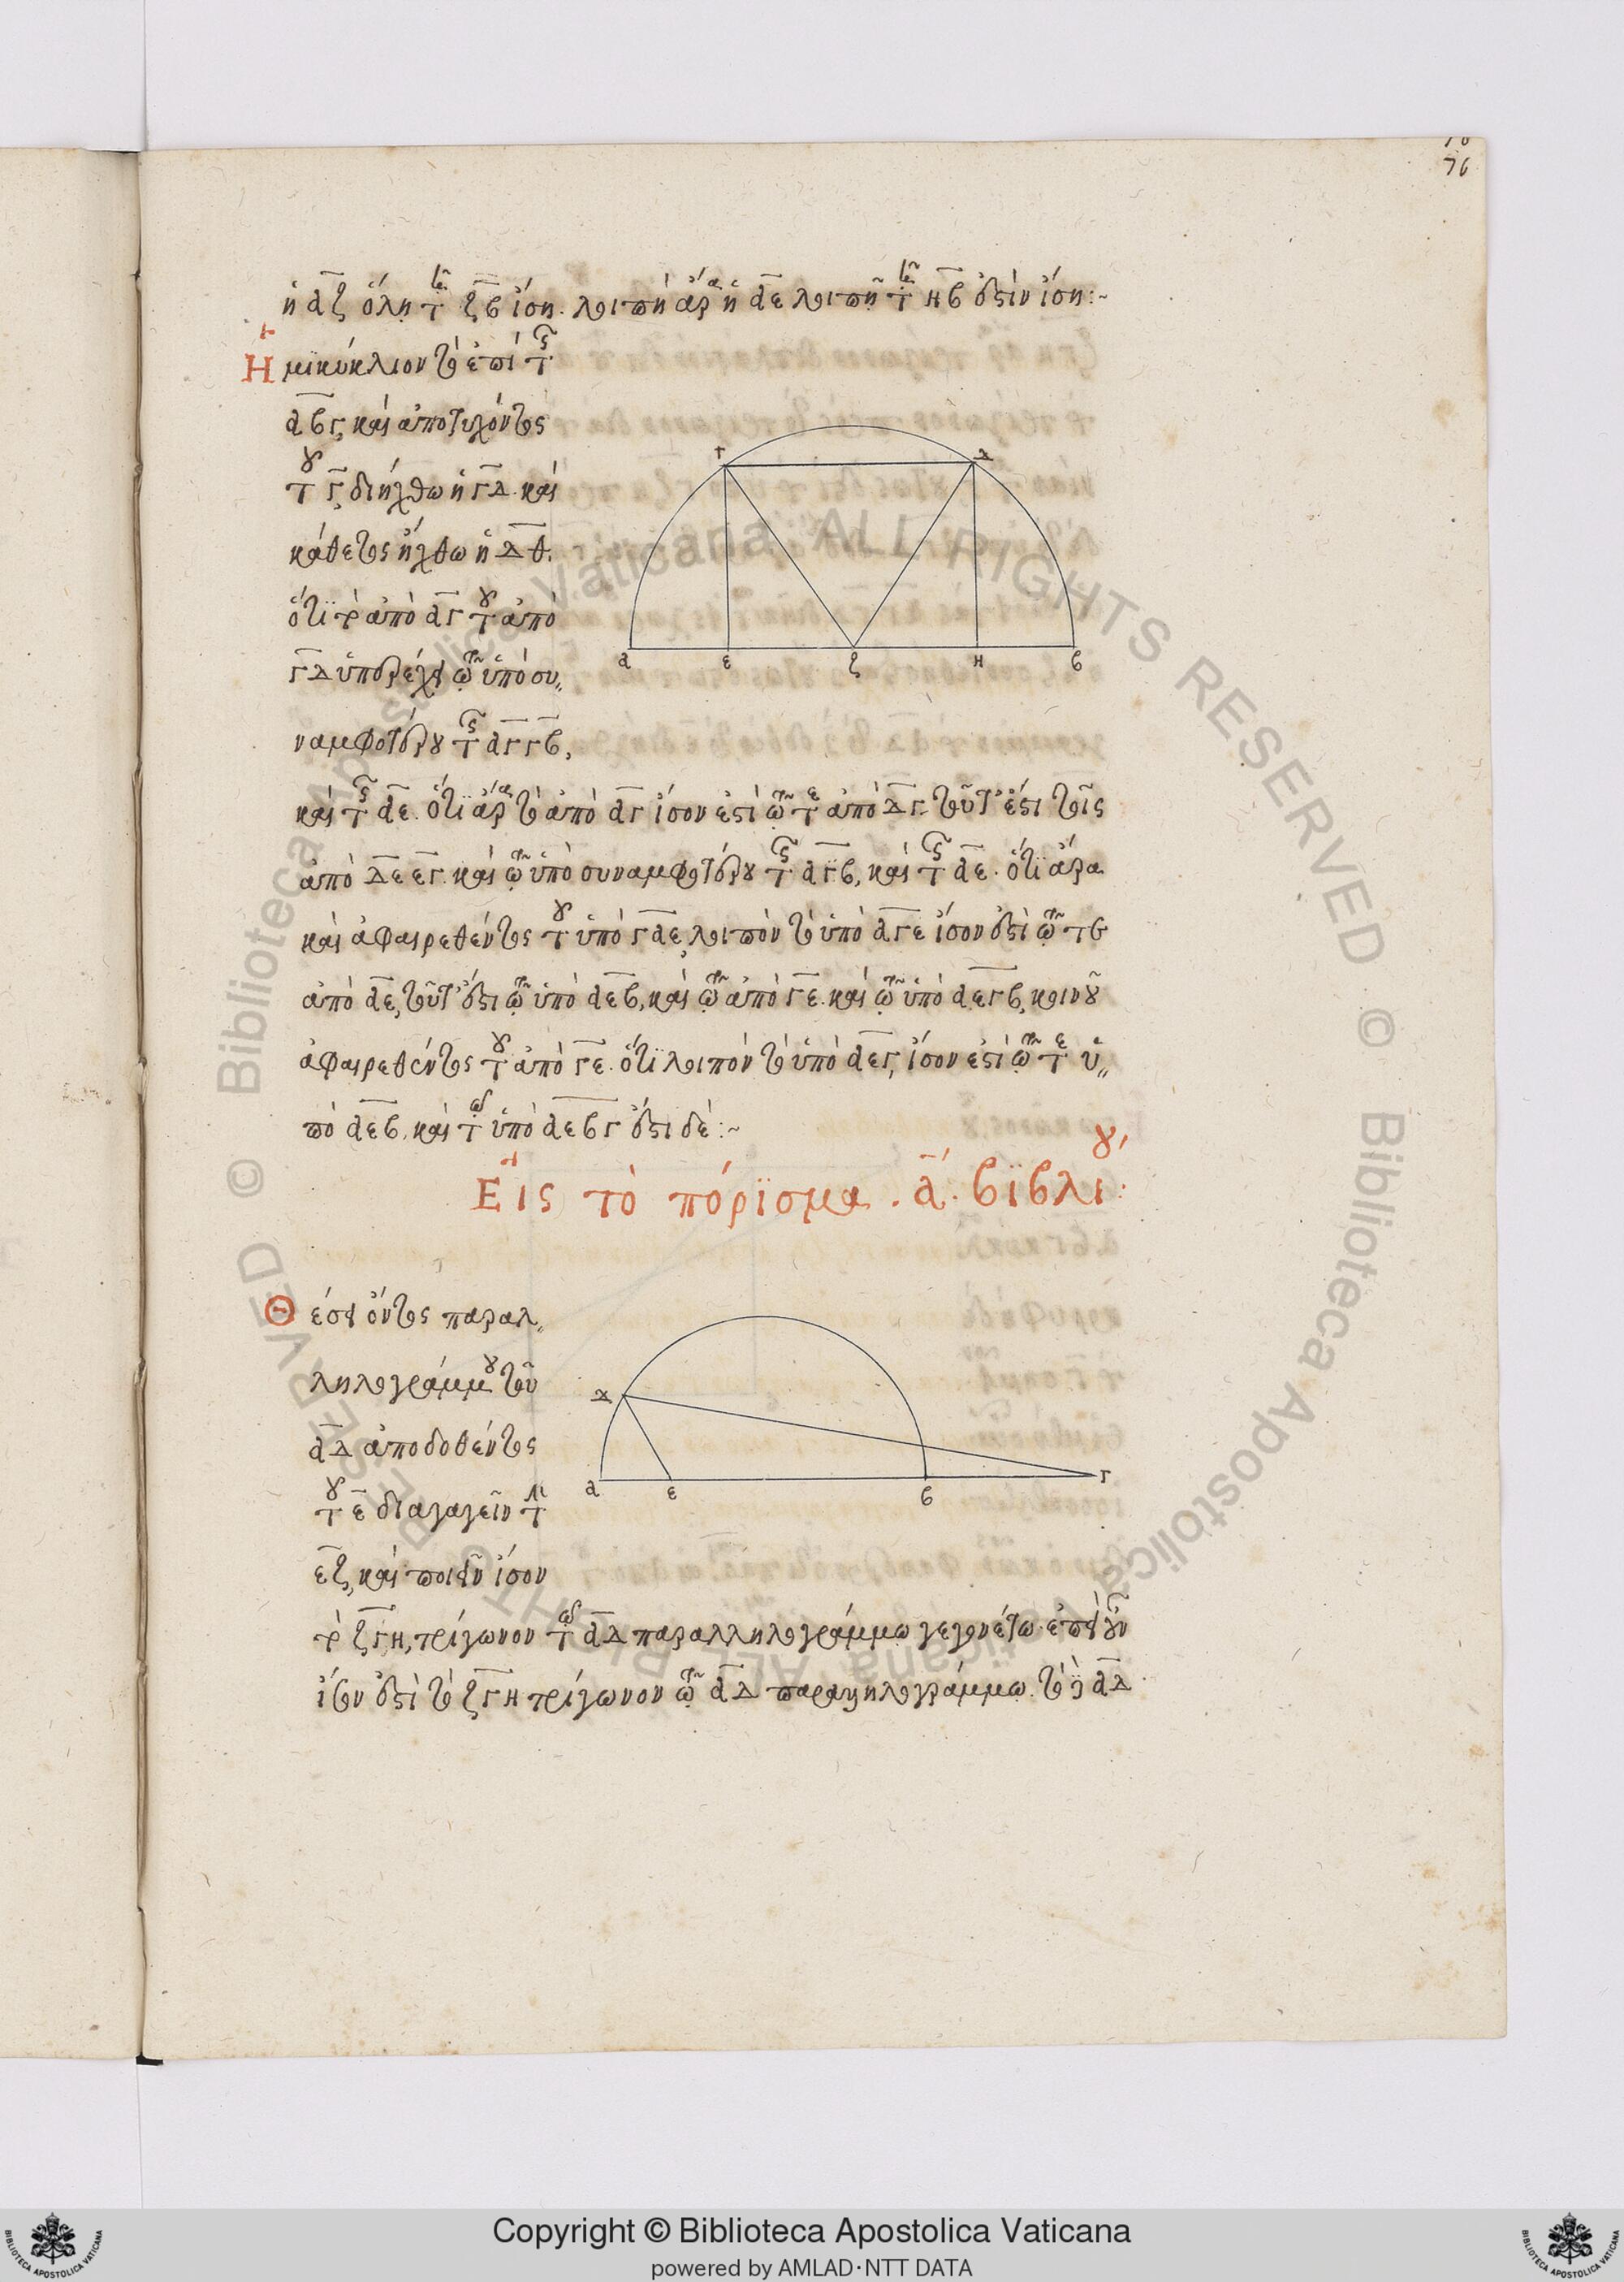 76
ἡ αζ ὅλῃ τῇ ζβ ἴση. λοιπὴ ἄρα ἡ αε λοιπῇ τῇ ηβ ἐστὶν ἴση:~
Ημικύκλιον τὸ ἐπὶ τῆς
αβγ, καὶ ἀπὸ τυχόντος
τοῦ γ, διήχθω ἡ γδ. καὶ
κάθετος ἤχθω ἡ δθ.
ὅτι τὸ ἀπὸ αγ τοῦ ἀπὸ
γδ ὑπερέχει τῷ ὑπὸ συ„
ναμφοτέρου τῆς αγ γβ,
καὶ τῆς αε. ὅτι ἄρα τὸ ἀπὸ αγ ἴσον ἐστὶ τῷ τε ἀπὸ δγ. τοῦτ' ἔστι τοῖς
ἀπὸ δε εγ. καὶ τῷ ὑπὸ συναμφοτέρου τῆς αγβ, καὶ τῆς αε. ὅτι ἄρα
καὶ ἀφαιρεθέντος τοῦ ὑπὸ γαε, λοιπὸν τὸ ὑπὸ αγε ἴσον ἐστὶ τῷ τε
ἀπὸ δε, τοῦτ' ἔστι τῷ ὑπὸ αεβ, καὶ τῷ ἀπὸ γε. καὶ τῷ ὑπὸ αεγβ, κοινοῦ
ἀφαιρεθέντος τοῦ ἀπὸ γε. ὅτι λοιπὸν τὸ ὑπὸ αεγ, ἴσον ἐστὶ τῷ τε ὑ„
πὸ αεβ, καὶ τῷ ὑπὸ αεβγ ἔστι δέ:~
Εἰς τὸ πόρϊσμα. α. βϊβλίου:
Θέσει ὄντος παραλ„
ληλογράμμου τοῦ
αδ ἀπὸ δοθέντος
τοῦ ε διαγαγεῖν τὴν
εζ, καὶ ποιεῖν ἴσον
τὸ ζγη, τρίγωνον τῷ αδ παραλληλογράμμῳ γεγονέτω. ἐπεὶ οὖν
ἴσον ἐστὶ τὸ ζγη τρίγωνον τῷ αδ παραλληλογράμμῳ. τὸ δὲ αδ
γ δ
α ε ζ η β
δ
α ε β γ
© Biblioteca Apostolica Vaticana ALL RIGHTS RESERVED © Biblioteca Apostolica Vaticana ALL RIGHTS RESERVED
Copyright © Biblioteca Apostolica Vaticana
powered by AMLAD·NTT DATA
BIBLIOTECA APOSTOLICA VATICANA
BIBLIOTECA APOSTOLICA VATICANA